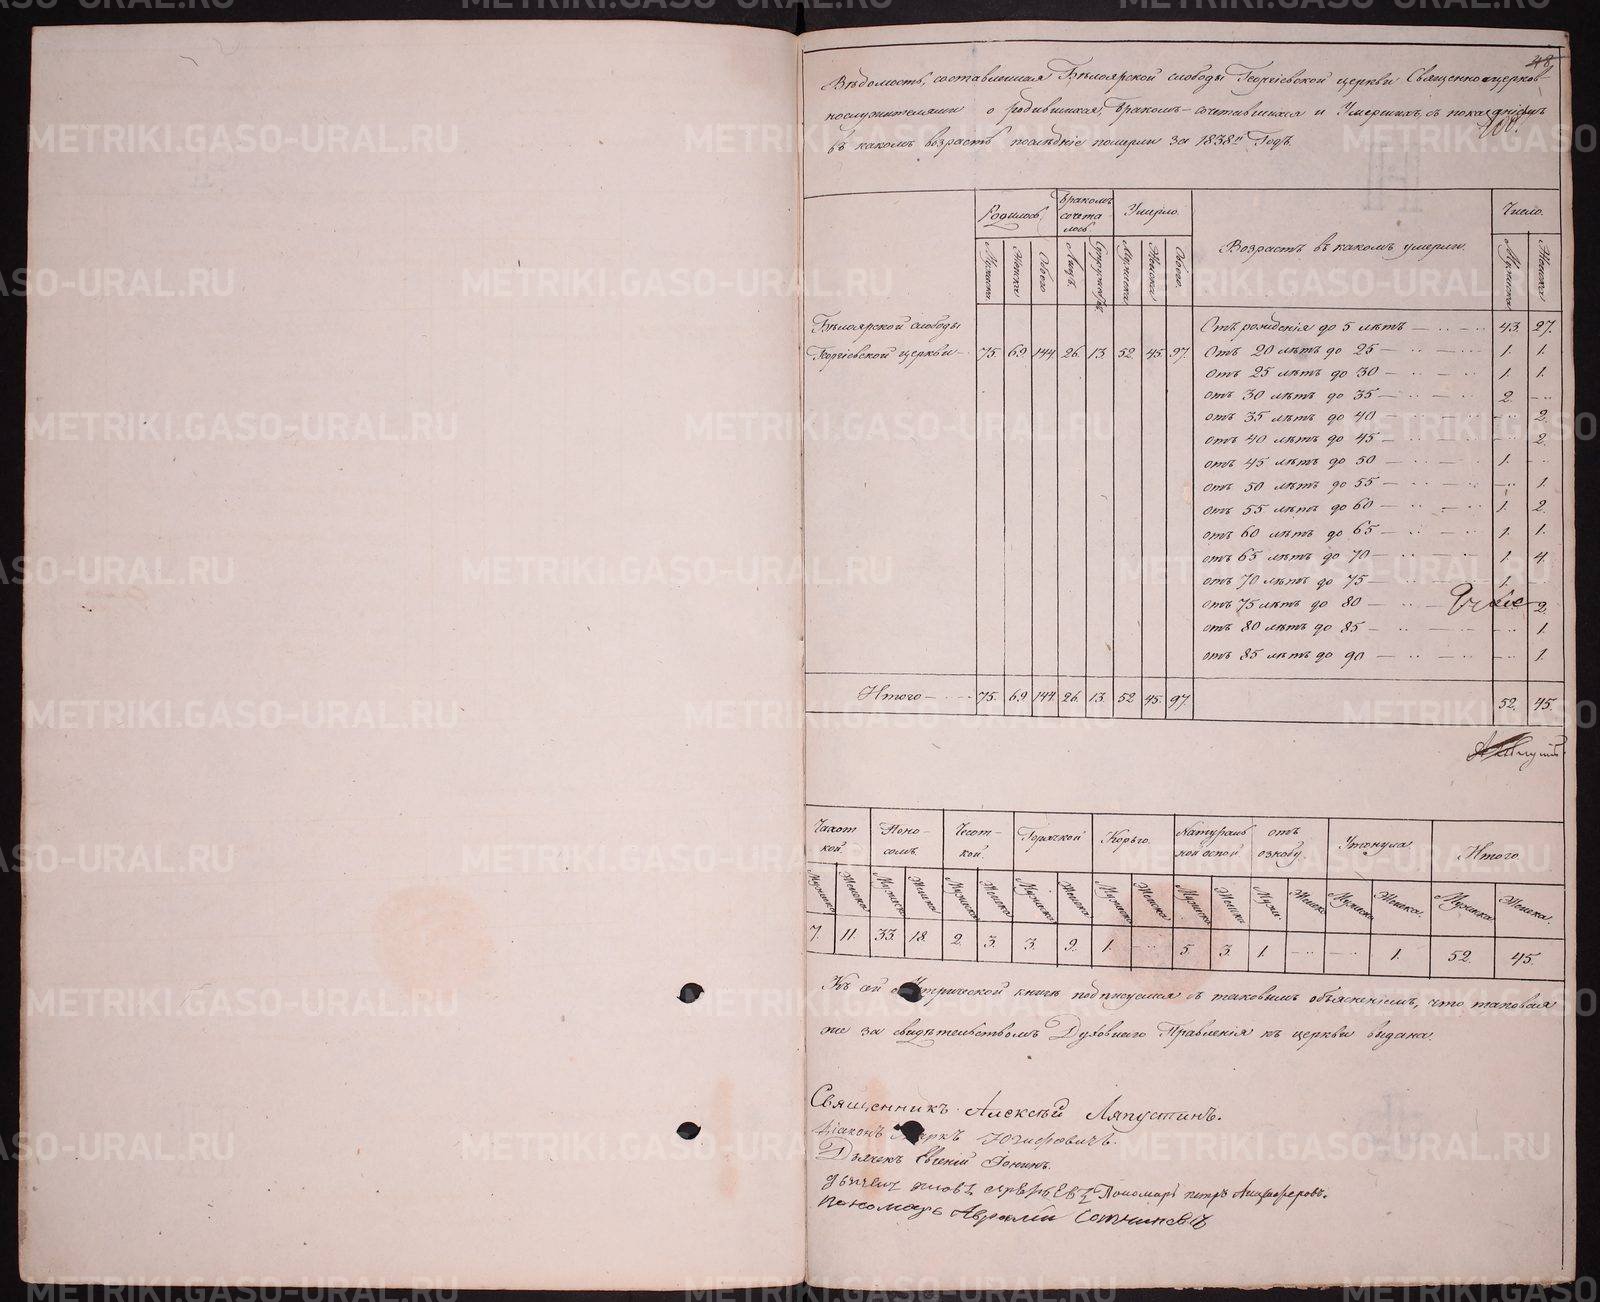 48
Вѣдомость, составленная Бѣлоярской слободы Георгіевской церкви Священноцерков-
нослужителями о родившихся, бракомъ-сочетавшихся и Умершихъ, съ показаніемъ
въ какомъ возрастѣ послѣдніе померли за 1838й Годъ.
Родилось Бракомъ сочета лось. Умерло. Возрастъ въ какомъ умерли. Число.
Мужска Женска Обоего Лицъ. Супружес. Мужска Женска Обоего. Мужска Женска
Бѣлоярской слободы
Георгіевской церкви— 75. 69. 144. 26. 13. 52. 45. 97.
Отъ рожденія до 5 лѣтъ — 43. 27.
Отъ 20 лѣтъ до 25 — 1. 1.
отъ 25 лѣтъ до 30 — 1. 1.
отъ 30 лѣтъ до 35 — 2. —
отъ 35 лѣтъ до 40 — — 2.
отъ 40 лѣтъ до 45 — — 2.
отъ 45 лѣтъ до 50 — 1. —
отъ 50 лѣтъ до 55 — — 1.
отъ 55 лѣтъ до 60 — 1. 2.
отъ 60 лѣтъ до 65 — 1. 1.
отъ 65 лѣтъ до 70 — 1. 4.
отъ 70 лѣтъ до 75 — 1.
отъ 75 лѣтъ до 80 — 2.
отъ 80 лѣтъ до 85 — — 1.
отъ 85 лѣтъ до 90 — — 1.
Итого — 75. 69. 144. 26. 13. 52. 45. 97. 52. 45.
Чахот кой. Поно- сомъ. Чесот- кой. Горячкой Корью. Натураль ной оспой отъ ознобу. Утонула Итого.
Мужска Женска Мужска Женска Мужска Женска Мужска Женска Мужска Женска Мужска Женска Мужи. Женска Мужска Женска. Мужска Женска.
7. 11. 33. 18. 2. 3. 3. 9. 1. — 5. 3. 1. — — 1. 52. 45.
Къ сей Метрической книгѣ подписуемся съ таковымъ объясненіемъ, что таковая
же за свидѣтельствомъ Духовнаго Правленія къ церкви выдана.
Священникъ Алексѣй Ляпустинъ.
Діаконъ Маркъ
Дьячекъ Евгеній Іонинъ.
Пономарь петръ Анцыферовъ.
пономарь Авраамій Сотниковъ
METRIKI.GASO-URAL.RU